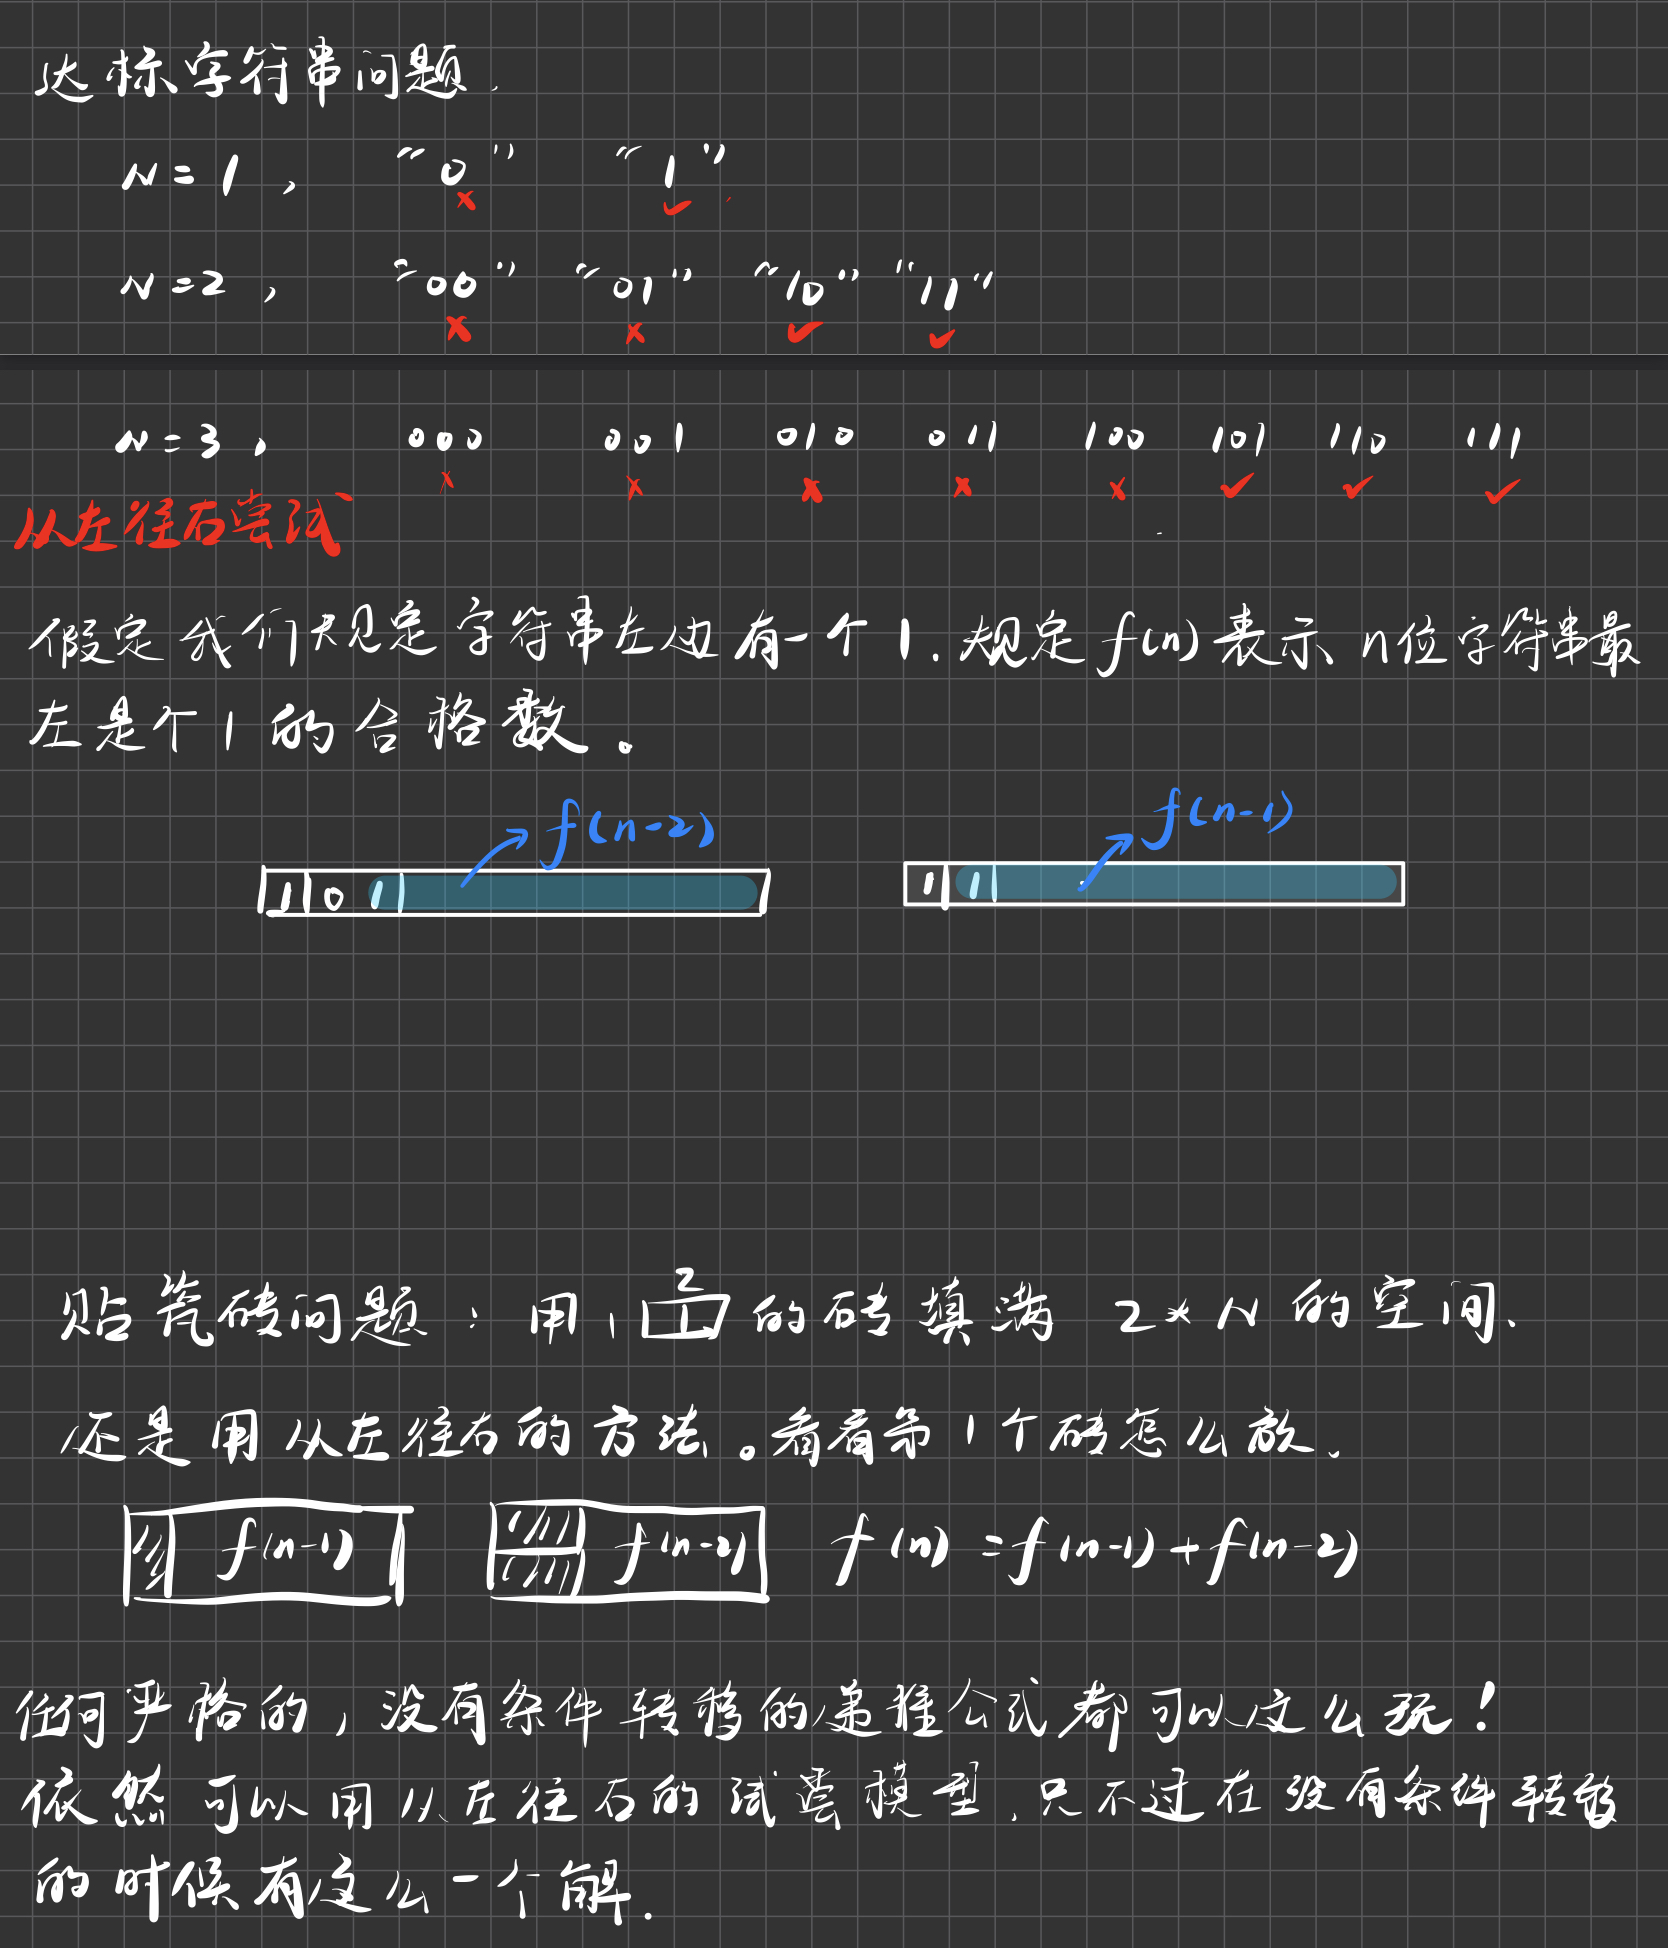 达标字符串问题.
N=1, "0" "1"
× ✓
N=2, "00" "01" "10" "11"
× × ✓ ✓
N=3, 000 001 010 011 100 101 110 111
× × × × × ✓ ✓ ✓
从左往右尝试
假定我们规定字符串左边有一个1.规定f(n)表示n位字符串最
左是个1的合格数。
f(n-2) f(n-1)
1 0 1 1 1
贴瓷砖问题:用1 2 1的砖填满 2*N的空间.
还是用从左往右的方法。看看第1个砖怎么放.
f(n-1) f(n-2) f(n)=f(n-1)+f(n-2)
任何严格的,没有条件转移的递推公式都可以这么玩!
依然可以用从左往右的试尝模型.只不过在没有条件转移
的时候有这么一个解.